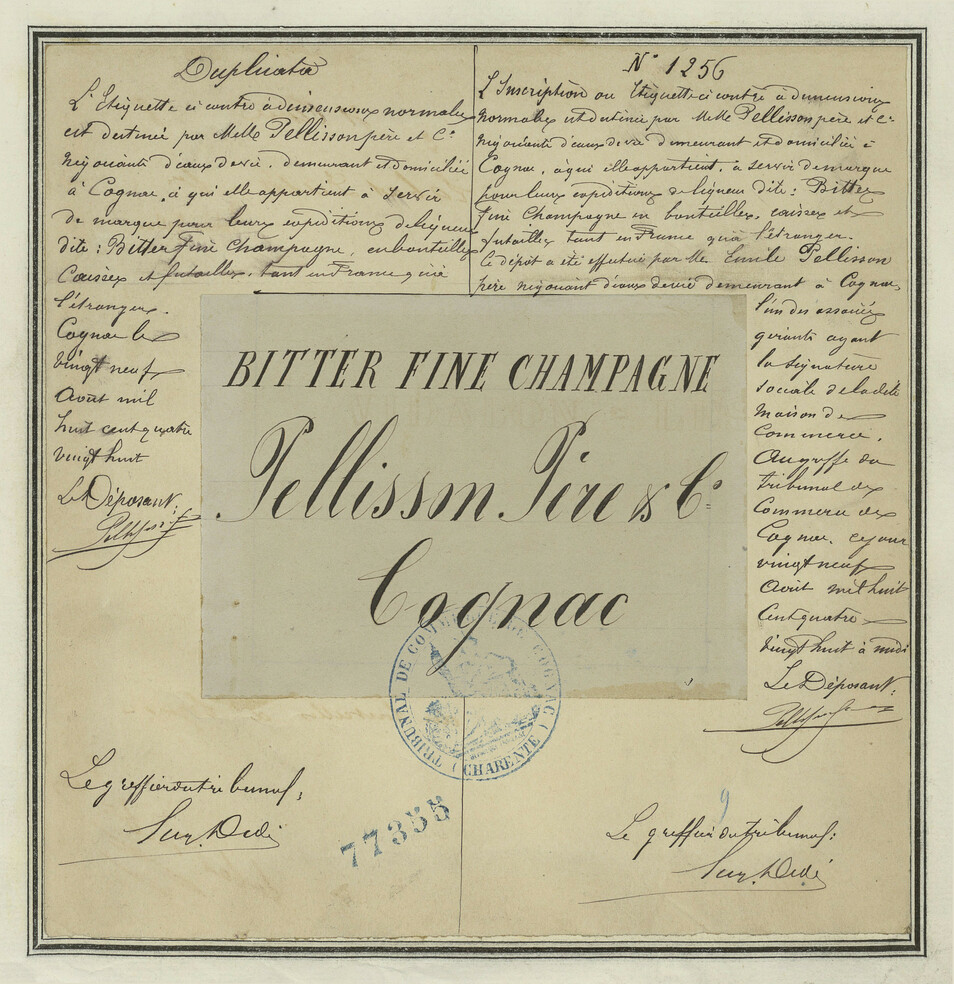 Duplicata
L'Etiquette ci contre à dimensions normales
est destinée par MMrs Pellisson père et Cie
négociants d'eaux de vie, demeurant et domiciliés
à Cognac, à qui elle appartient à servir
de marque pour leurs expéditions de liqueur
dite : Bitter fine Champagne, en bouteilles
Caisses et futailles, tant en France qu'à
l'étranger.
Cognac le
vingt neuf
Août mil
huit cent quatre
vingt huit
Le Déposant :
Le greffier du tribunal :
No 1256
L'Inscription ou Etiquette ci contre à dimensions
normales est destinée par MM Pellisson père et Cie
négociants d'eaux de vie demeurant et domiciliés à
Cognac, à qui elle appartient, à servir de marque
pour leurs expéditions de liqueur dite : Bitter
fine Champagne en bouteilles, caisses et
futailles tant en France qu'à l'étranger.
Le dépôt a été effectué par Mr Emile Pellisson
père négociant d'eaux de vie demeurant à Cognac,
l'un des associés
gérants ayant
la signature
sociale de la dite
maison de
Commerce.
Au greffe du
tribunal de
Commerce de
Cognac, ce jour
vingt neuf
Août mil huit
Cent quatre
vingt huit à midi
Le Déposant :
Le greffier du tribunal :
BITTER FINE CHAMPAGNE
Pellisson Père & Co
Cognac
TRIBUNAL DE COMMERCE DE COGNAC
(CHARENTE)
77355
9